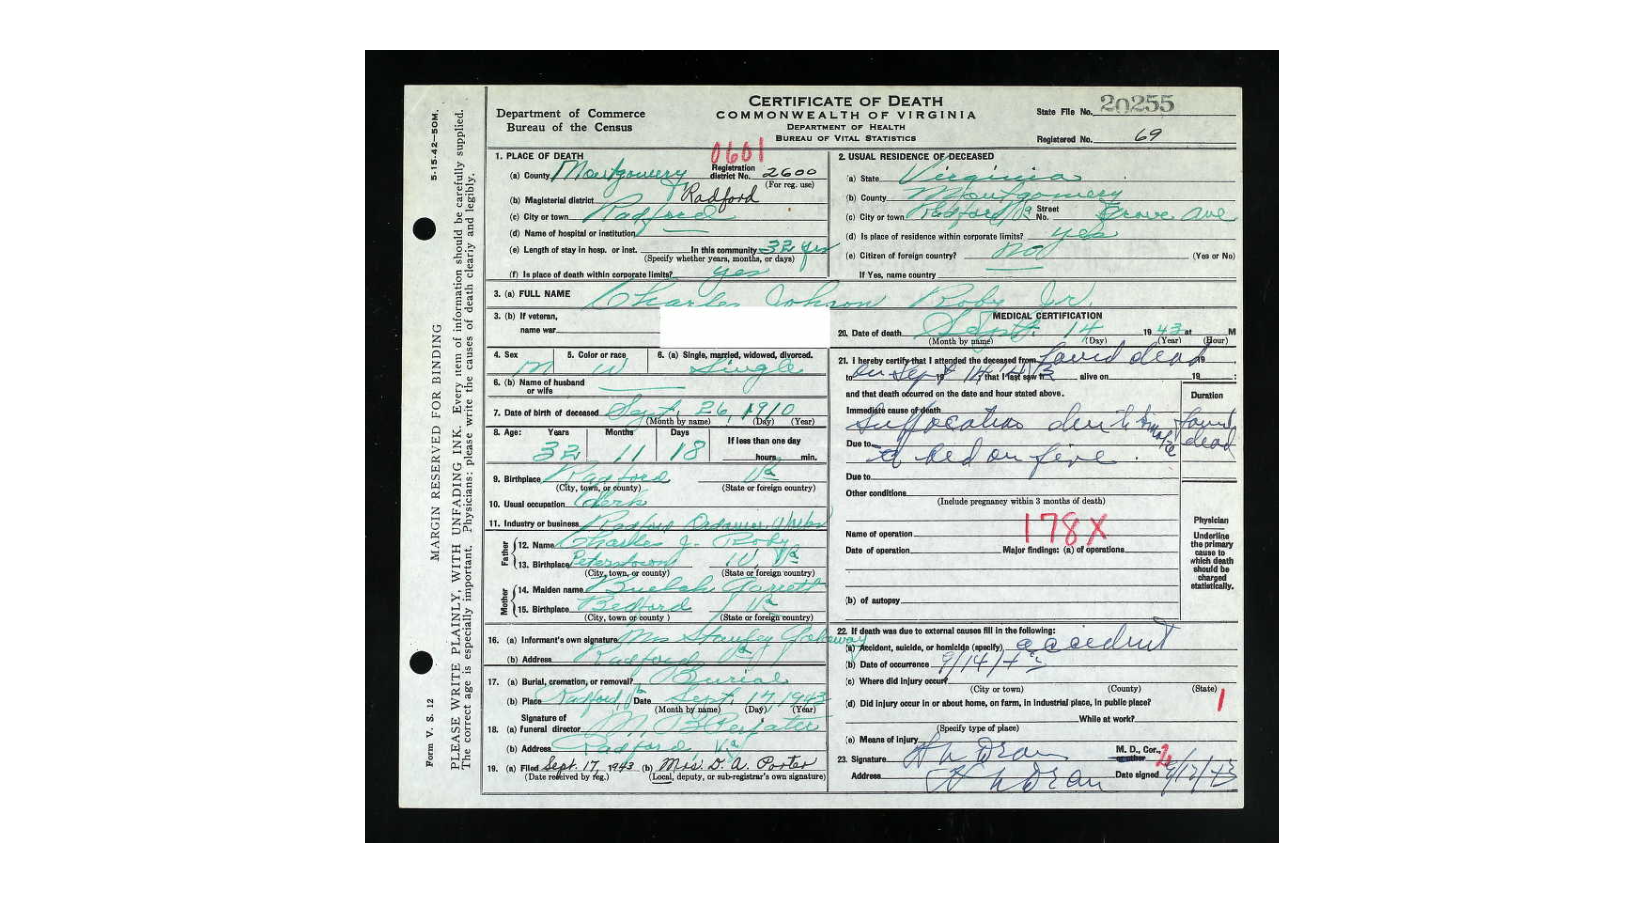 CERTIFICATE OF DEATH
COMMONWEALTH OF VIRGINIA
DEPARTMENT OF HEALTH
BUREAU OF VITAL STATISTICS
Department of Commerce
Bureau of the Census
State File No. 20255
Registered No. 69
5-15-42—50M.
MARGIN RESERVED FOR BINDING
PLEASE WRITE PLAINLY, WITH UNFADING INK. Every item of information should be carefully supplied.
The correct age is especially important. Physicians: please write the causes of death clearly and legibly.
Form V. S. 12
0601
1. PLACE OF DEATH
(a) County Montgomery Registration district No. 2600
(For reg. use)
(b) Magisterial district Radford
(c) City or town Radford
(d) Name of hospital or institution
(e) Length of stay in hosp. or inst. In this community 32 yrs
(Specify whether years, months, or days)
(f) Is place of death within corporate limits? yes
2. USUAL RESIDENCE OF DECEASED
(a) State Virginia
(b) County Montgomery
(c) City or town Radford Va Street No. Grove Ave
(d) Is place of residence within corporate limits? yes
(e) Citizen of foreign country? no (Yes or No)
If Yes, name country
3. (a) FULL NAME Charles Johnson Roby Jr.
3. (b) If veteran,
name war
4. Sex M
5. Color or race W
6. (a) Single, married, widowed, divorced. Single
6. (b) Name of husband
or wife
7. Date of birth of deceased Sept. 26, 1910
(Month by name) (Day) (Year)
8. Age: Years Months Days If less than one day
32 11 18 hours min.
9. Birthplace Radford Va
(City, town, or county) (State or foreign country)
10. Usual occupation Clerk
11. Industry or business Radford Ordnance Works
Father
12. Name Charles J. Roby
13. Birthplace Peterstown W. Va
(City, town, or county) (State or foreign country)
Mother
14. Maiden name Buelah Garrett
15. Birthplace Bedford Va
(City, town or county ) (State or foreign country)
16. (a) Informant's own signature Mrs Stanley
(b) Address Radford Va
17. (a) Burial, cremation, or removal? Burial
(b) Place Radford Va Date Sept. 17, 1943
(Month by name) (Day) (Year)
Signature of
18. (a) funeral director M. B.
(b) Address Radford, Va
19. (a) Filed Sept. 17, 1943 (b) Mrs. D. A. Porter
(Date received by reg.) (Local, deputy, or sub-registrar's own signature)
MEDICAL CERTIFICATION
20. Date of death Sept. 14 1943 at M
(Month by name) (Day) (Year) (Hour)
21. I hereby certify that I attended the deceased from found dead 19
to on Sept 14 43 19 , that I last saw h alive on 19 ;
and that death occurred on the date and hour stated above.
Duration
Immediate cause of death
Suffocation due to smoke found dead
Due to
bed on fire.
Due to
Other conditions
(Include pregnancy within 3 months of death)
178X
Name of operation
Date of operation Major findings: (a) of operations
(b) of autopsy
Physician
Underline
the primary
cause to
which death
should be
charged
statistically.
22. If death was due to external causes fill in the following:
(a) Accident, suicide, or homicide (specify) accident
(b) Date of occurrence 9/14/43
(c) Where did injury occur?
(City or town) (County) (State)
1
(d) Did injury occur in or about home, on farm, in industrial place, in public place?
While at work?
(Specify type of place)
(e) Means of injury
23. Signature M. D., Cor.,
or other
Address Date signed